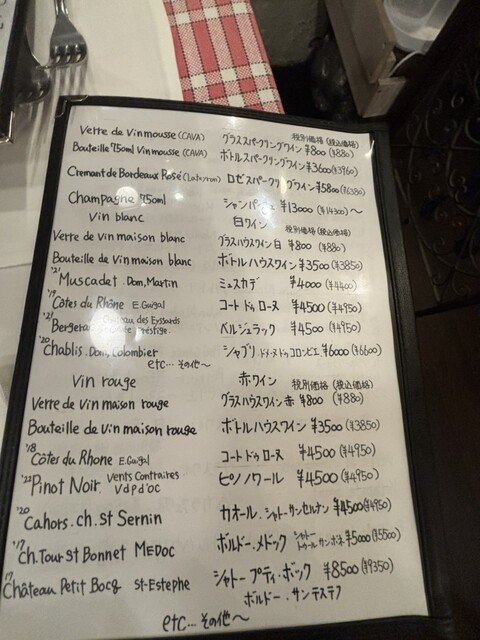 税別価格(税込価格)
Verre de Vin mousse (CAVA) グラススパークリングワイン ¥800 (¥880)
Bouteille 750ml Vin mousse (CAVA) ボトルスパークリングワイン ¥3600 (¥3960)
Cremant de Bordeaux Rosé ロゼスパークリングワイン ¥5800 (¥6380)
Champagne 750ml シャンパーニュ ¥13000 (¥14300)〜
Vin blanc 白ワイン 税別価格(税込価格)
Verre de vin maison blanc グラスハウスワイン白 ¥800 (¥880)
Bouteille de vin maison blanc ボトルハウスワイン ¥3500 (¥3850)
'21 Muscadet. Dom, Martin ミュスカデ ¥4000 (¥4400)
'19 Côtes du Rhône E. Guigal コート ドゥ ローヌ ¥4500 (¥4950)
'21 des Eyssards Prestige. ベルジュラック ¥4500 (¥4950)
'20 Chablis. Dom, Colombier シャブリ. ドメーヌ ドゥ コロンビエ ¥6000 (¥6600)
etc... その他〜
Vin rouge 赤ワイン 税別価格(税込価格)
Verre de Vin maison rouge グラスハウスワイン赤 ¥800 (¥880)
Bouteille de vin maison rouge ボトルハウスワイン ¥3500 (¥3850)
'18 Côtes du Rhone E. Guigal コート ドゥ ローヌ ¥4500 (¥4950)
'22 Pinot Noir. Vents Contraires VdP d'OC ピノノワール ¥4500 (¥4950)
'20 Cahors. ch. St Sernin カオール. シャトーサンセルナン ¥4500 (¥4950)
'17 ch. Tour St Bonnet MEDOC ボルドー. メドック シャトー トゥール サン ボネ ¥5000 (¥5500)
Château Petit Bocq St-Estephe シャトー プティ・ボック ¥8500 (¥9350)
ボルドー. サンテステフ
etc... その他〜